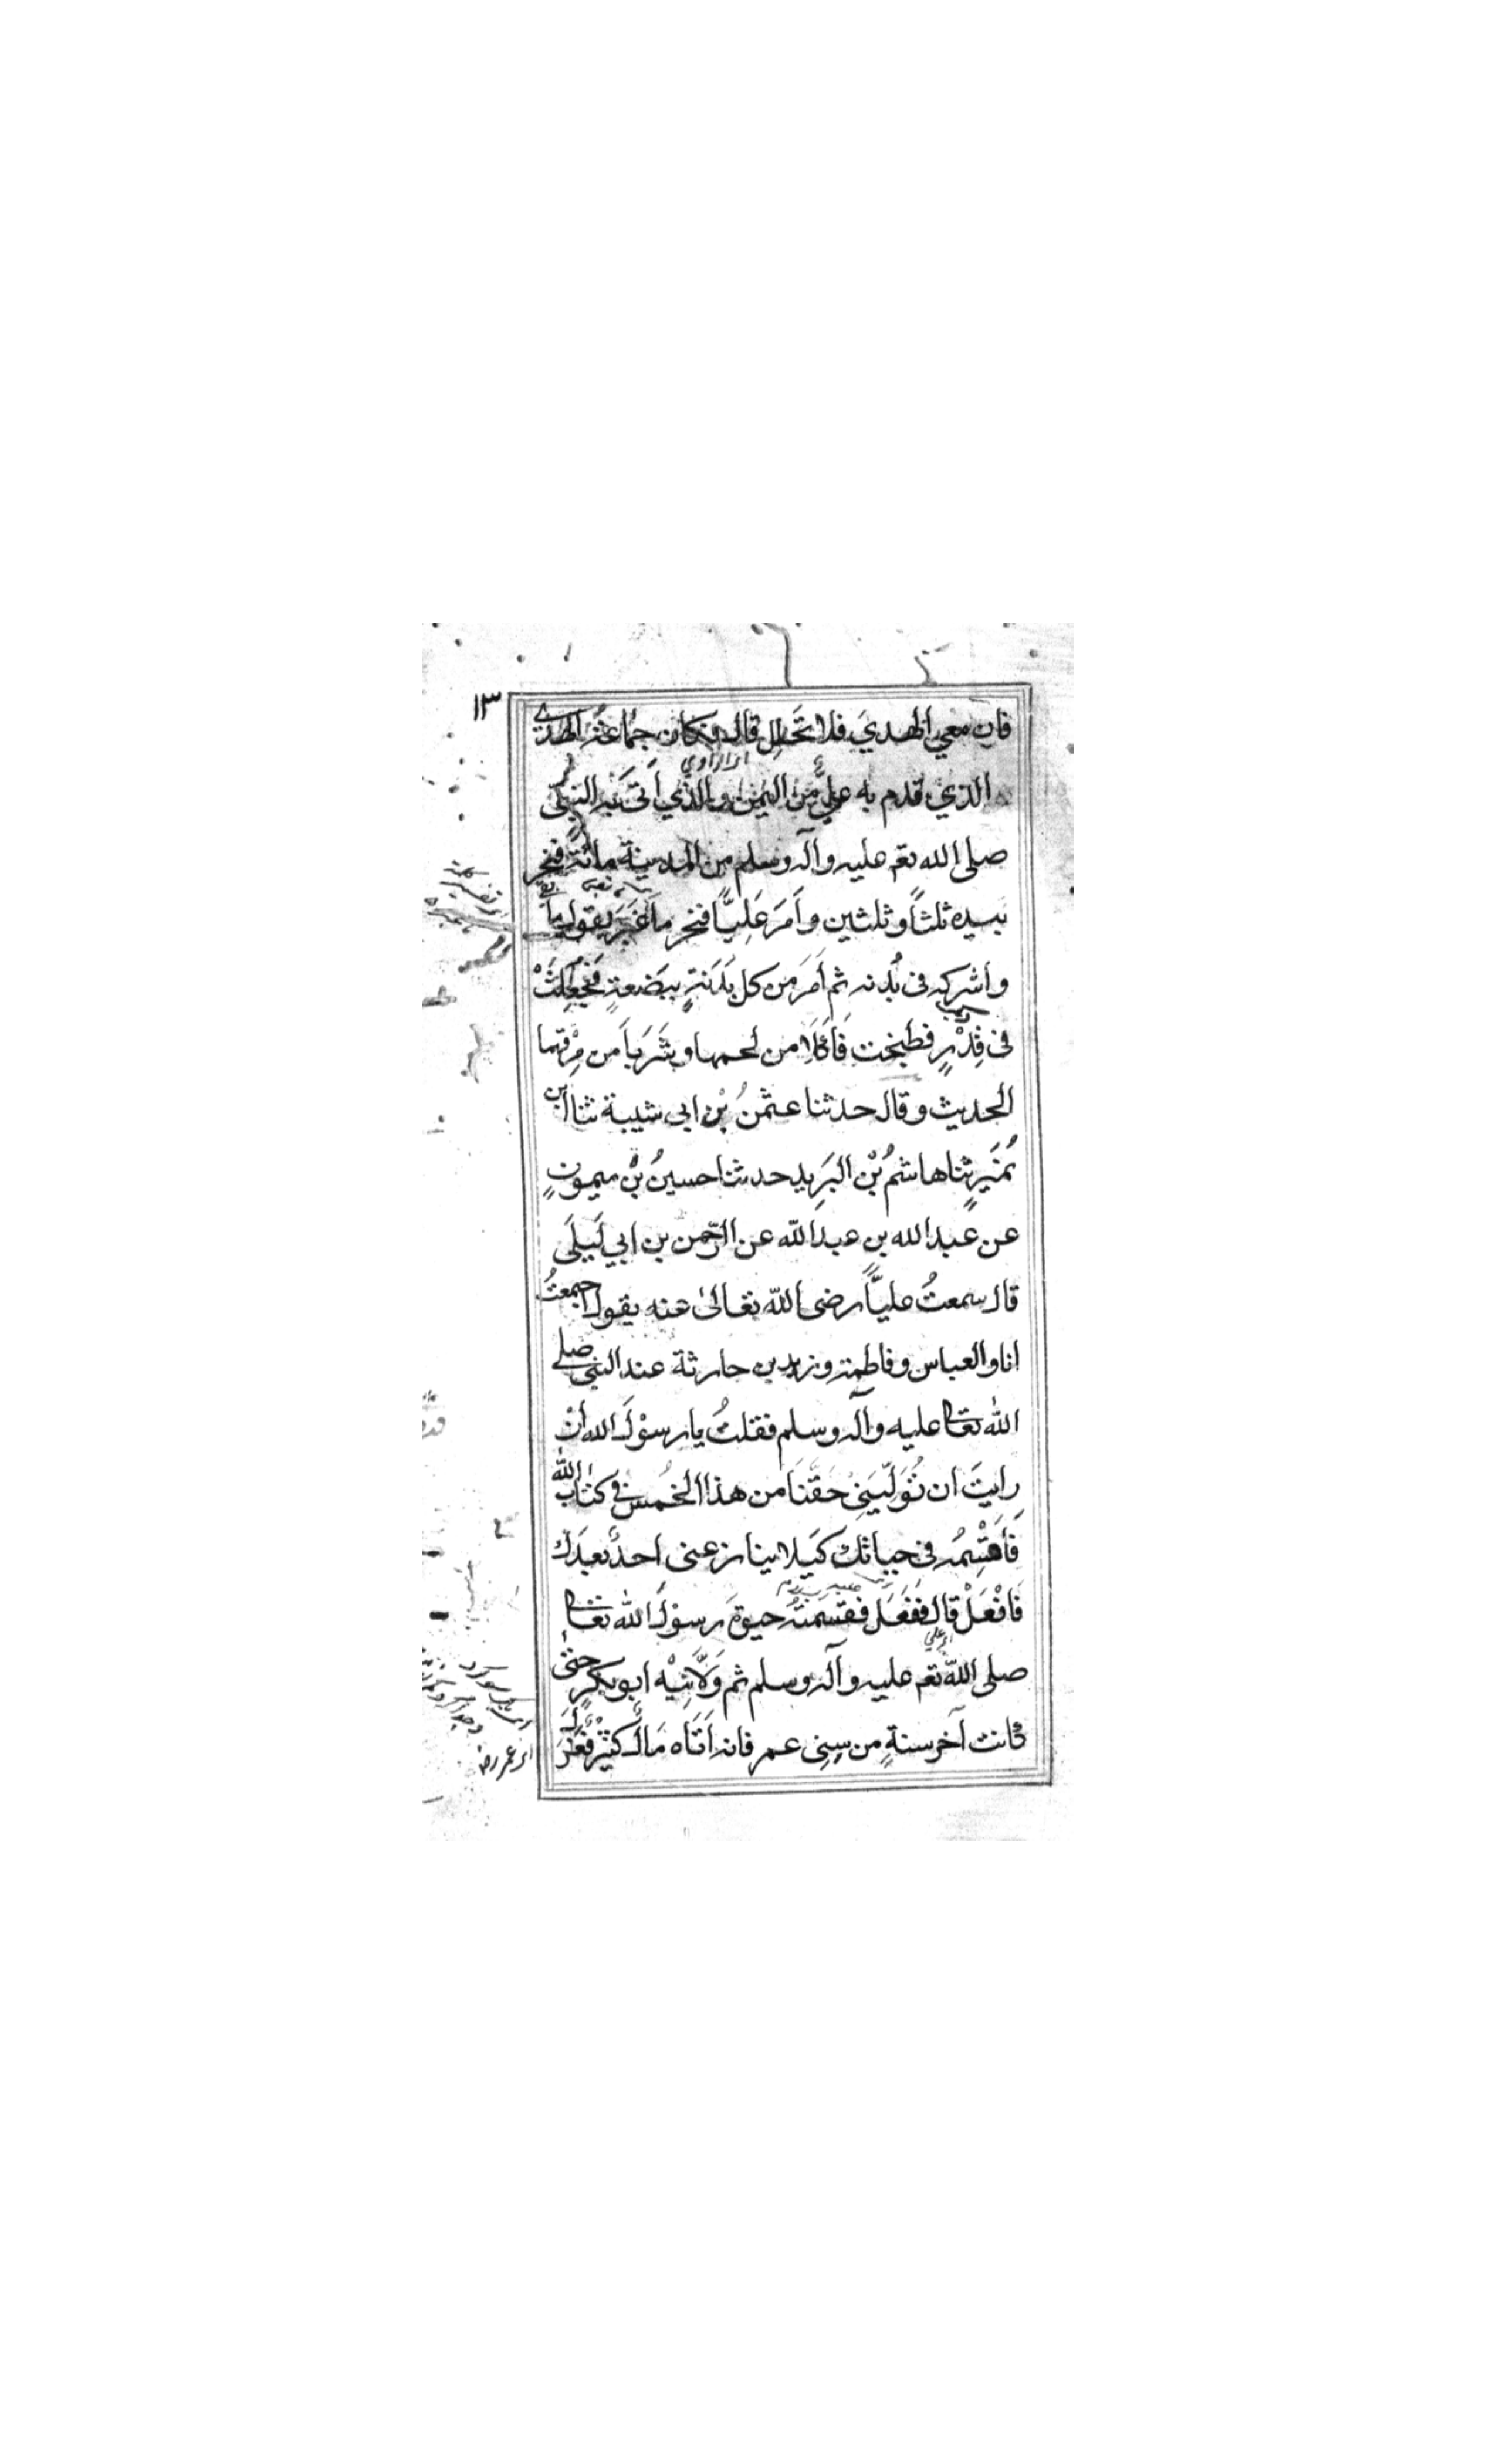 ١٣
فان معي الهدي فلا تحلل قال فكان جماعة الهدي
الذي قدم به علي من اليمن والذي أتى به النبي
اي الراوي
صلى الله تعم عليه وآله وسلم من المدينة مائة فنحر
بيده ثلثاً وثلثين وأَمَرَ عَلِيًّا فنحر ما غَبَرَ يقول ما
وأشركه في بُدنه ثم أَمَرَ من كل بَدَنةٍ ببَضعةٍ فَجُعِلَتْ
في قِدْرٍ فطبخت فَأَكَلَا من لحمها وشَرِبَا من مرقتها
الحديث وقال حدثنا عثمنُ بْن ابي شيبة ثنا ابن
نُمَيرٍ ثنا هاشمُ بْن البَرِيد حدثنا حسينُ بْن ميمونٍ
عن عبد الله بن عبد اللّه عن الرّحمن بن ابي لَيلَى
قال سمعتُ عليًّا رضى اللّه تعالىٰ عنه يقول اجتمعتُ
انا والعباس وفاطمة وزيد بن حارثة عند النبي صلى
اللّه تعا عليه وآله وسلم فقلتُ يا رسوْلَ الله انْ
رايتَ ان تُوَلِّيَنِيْ حَقَّنَا من هذا الخُمس في كتاب الله
فَأَقْسِمُه في حياتك كَيلا ينازعني احدٌ بعدَك
فَافْعَلْ قال فَفَعَل فقسَمتُه حيوةَ رسوْلِ الله تعا
صلى اللّه تعم عليه وآله وسلم ثم وَلَّانِيْه ابو بكرٍ حتى
اي علي
كانت آخر سنةٍ من سِنِي عمر فانه اَتَاه مَالٌ كثيْرٌ فعَزَلَ
اي عمر رض